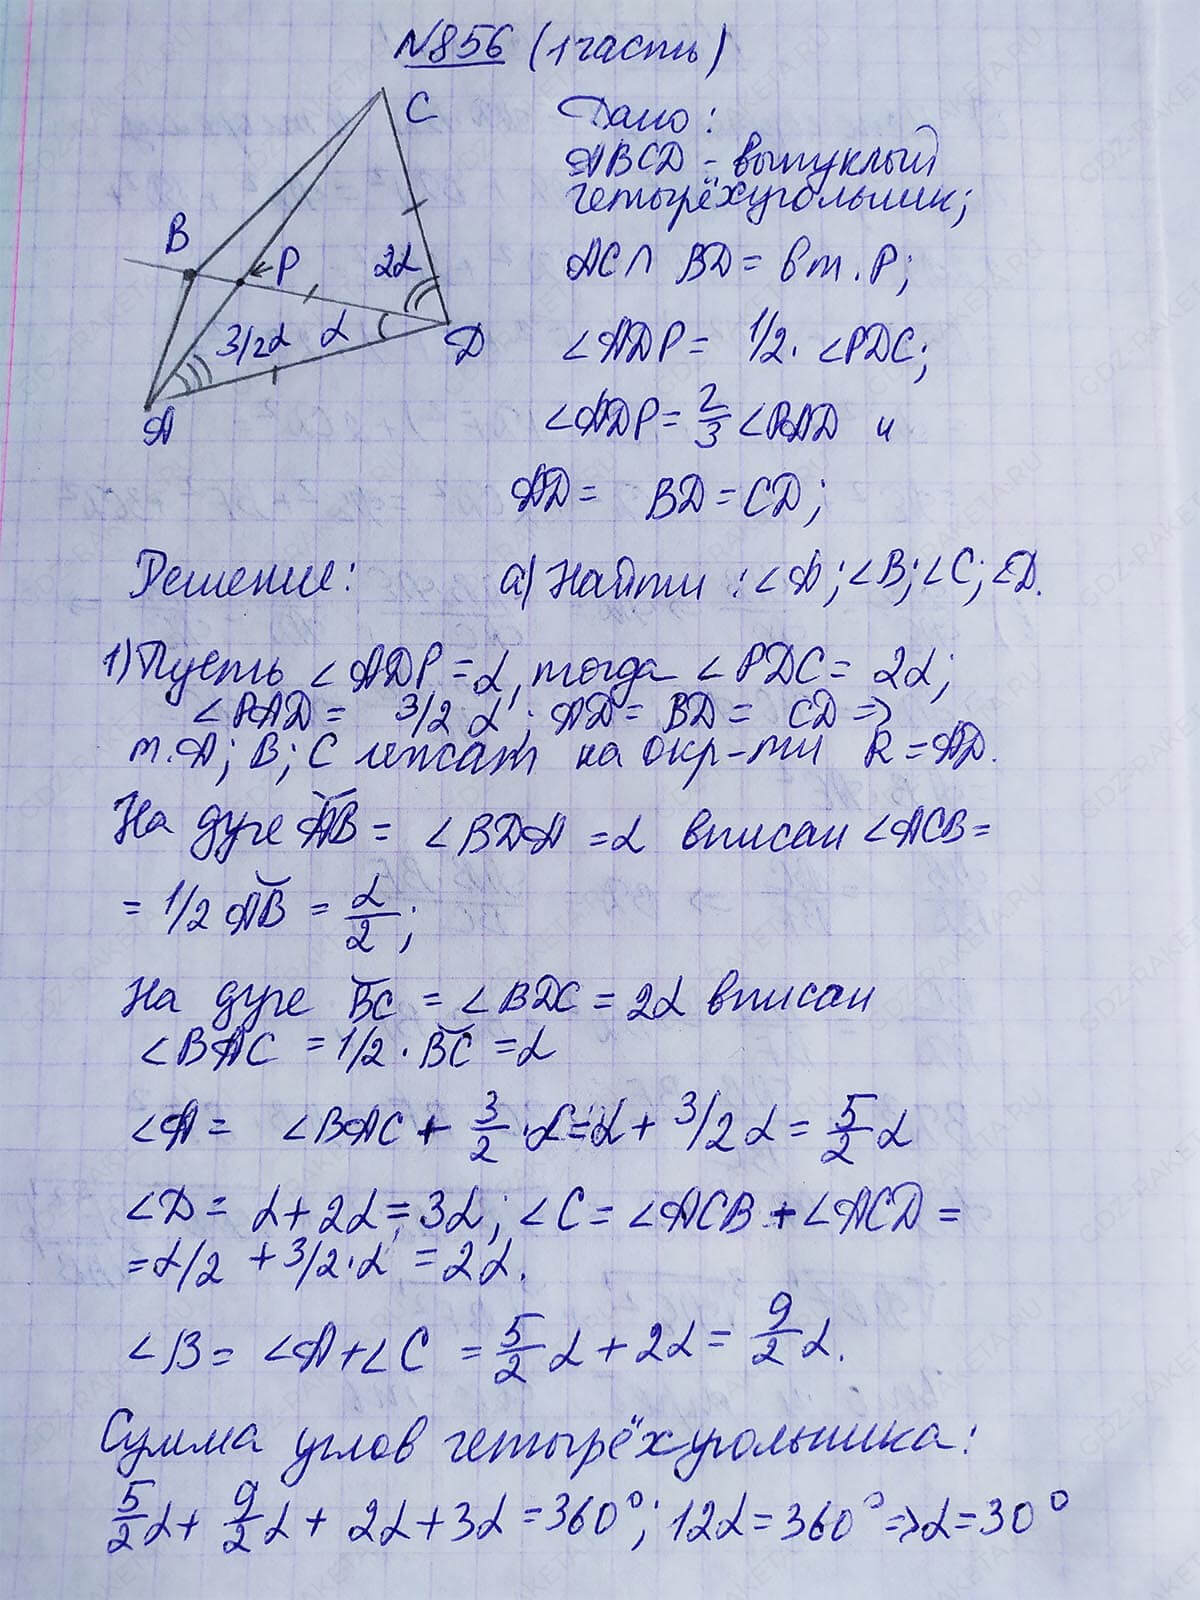 №856 (1 часть)
C
B
P
2α
3/2α
α
D
A
Дано:
ABCD - выпуклый
четырёхугольник;
AC ∩ BD = в т. P;
∠ADP = 1/2 · ∠PDC;
∠ADP = 2/3 ∠PAD и
AD = BD = CD;
Решение: а) Найти: ∠A; ∠B; ∠C; ∠D.
1) Пусть ∠ADP = α, тогда ∠PDC = 2α;
∠PAD = 3/2 α; AD = BD = CD =>
т. A; B; C лежат на окр-ти R = AD.
На дуге ◡AB = ∠BDA = α вписан ∠ACB =
= 1/2 ◡AB = α/2;
На дуге ◡BC = ∠BDC = 2α вписан
∠BAC = 1/2 · ◡BC = α
∠A = ∠BAC + 3/2 · α = α + 3/2 α = 5/2 α
∠D = α + 2α = 3α; ∠C = ∠ACB + ∠ACD =
= α/2 + 3/2 · α = 2α.
∠B = ∠A + ∠C = 5/2 α + 2α = 9/2 α.
Сумма углов четырёхугольника:
5/2 α + 9/2 α + 2α + 3α = 360°; 12α = 360° => α = 30°
GDZ-RAKETA.RU